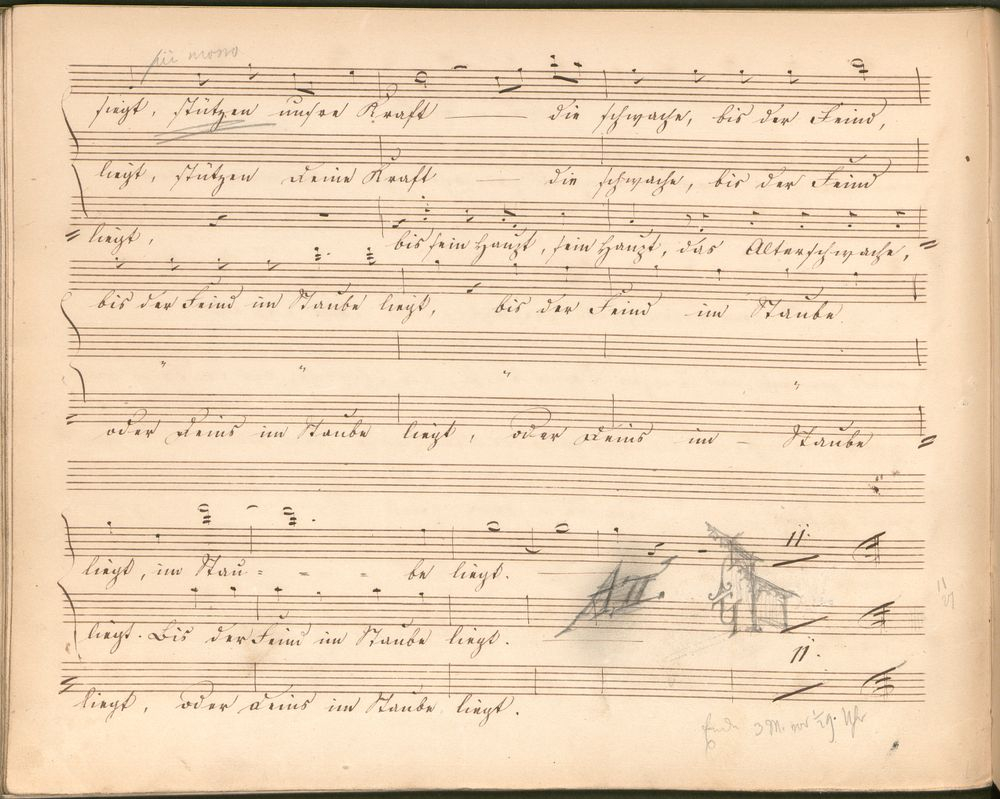 più mosso
siegt, stützen unsre Kraft — die schwache, bis der Feind,
liegt, stützen deine Kraft — die schwache, bis der Feind
liegt, bis sein Haupt, sein Haupt, das Altersschwache,
bis der Feind im Staube liegt, bis der Feind im Staube
oder deins im Staube liegt, oder deins im — Staube
liegt, im Stau - - - be liegt.
11.
liegt. Bis der Feind im Staube liegt.
11.
liegt, oder deins im Staube liegt.
Ende 3 M. vor ½ 9. Uhr